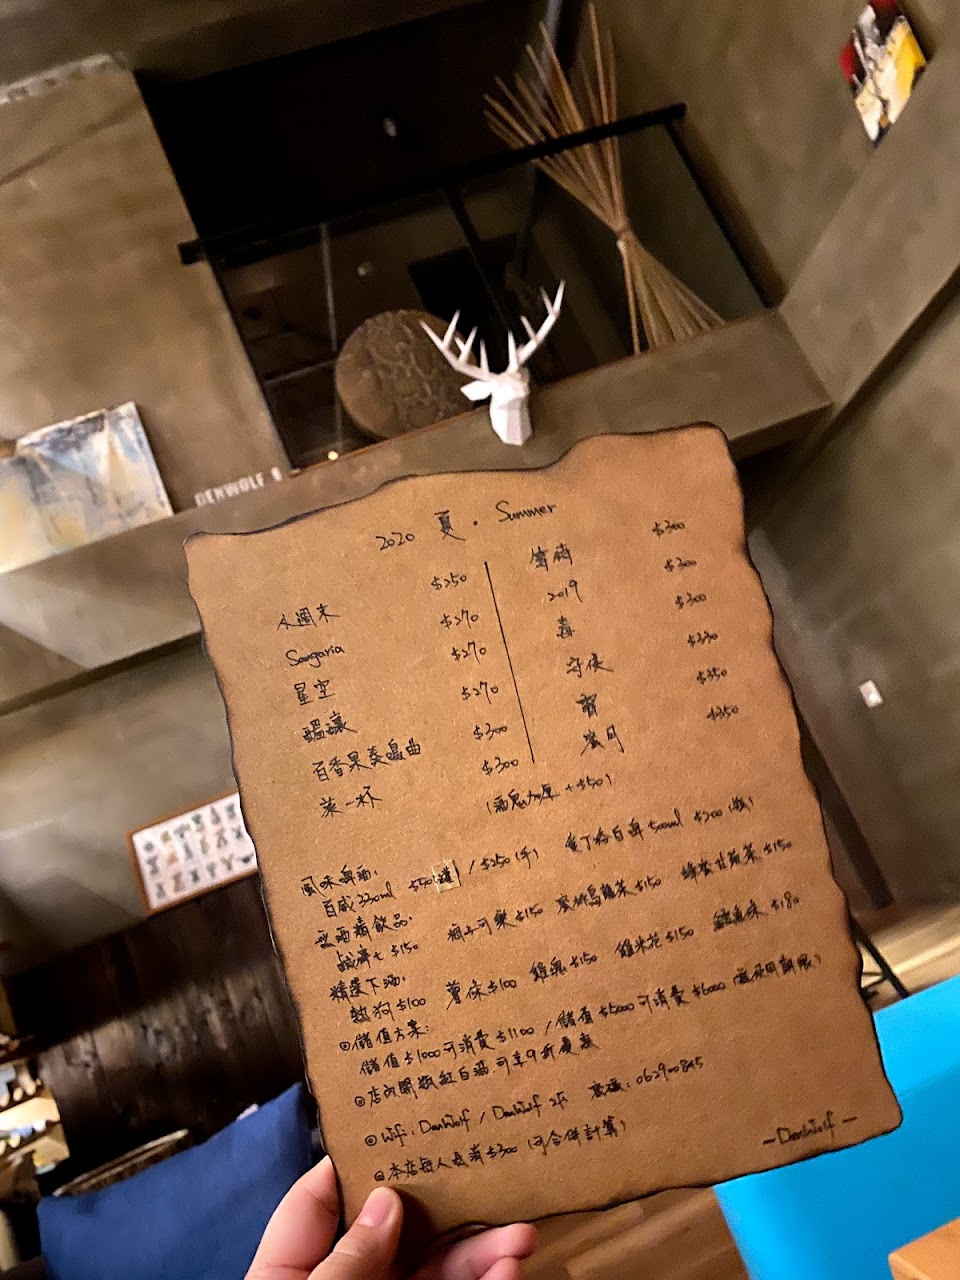 DENWOLF
2020 夏 . Summer
小週末 $250
Sangaria $270
星空 $270
醞釀 $270
百香果奏鳴曲 $300
一杯 $300
$300
2019 $300
毒 $300
守候 $330
$350
蜜月 $350
(酒鬼加厚 +$50)
風味啤酒:
百威 330ml $50(罐) / $250(手) 白啤 500ml $200 (瓶)
無酒精飲品:
鹹濟七 $150 可樂 $150 蜜桃烏龍茶 $150 蜂蜜甘菊茶 $150
精選下酒:
熱狗 $100 薯條 $100 雞塊 $150 雞米花 $150 鱈魚條 $180
⊙儲值方案:
儲值 $1000 可消費 $1100 / 儲值 $5000 可消費 $6000 (無使用期限)
⊙店內開瓶紅白酒,可享9折優惠
⊙Wifi: DenWolf / DenWolf 2F 密碼: 062900845
⊙本店每人低消 $300 (可合併計算)
— DenWolf —